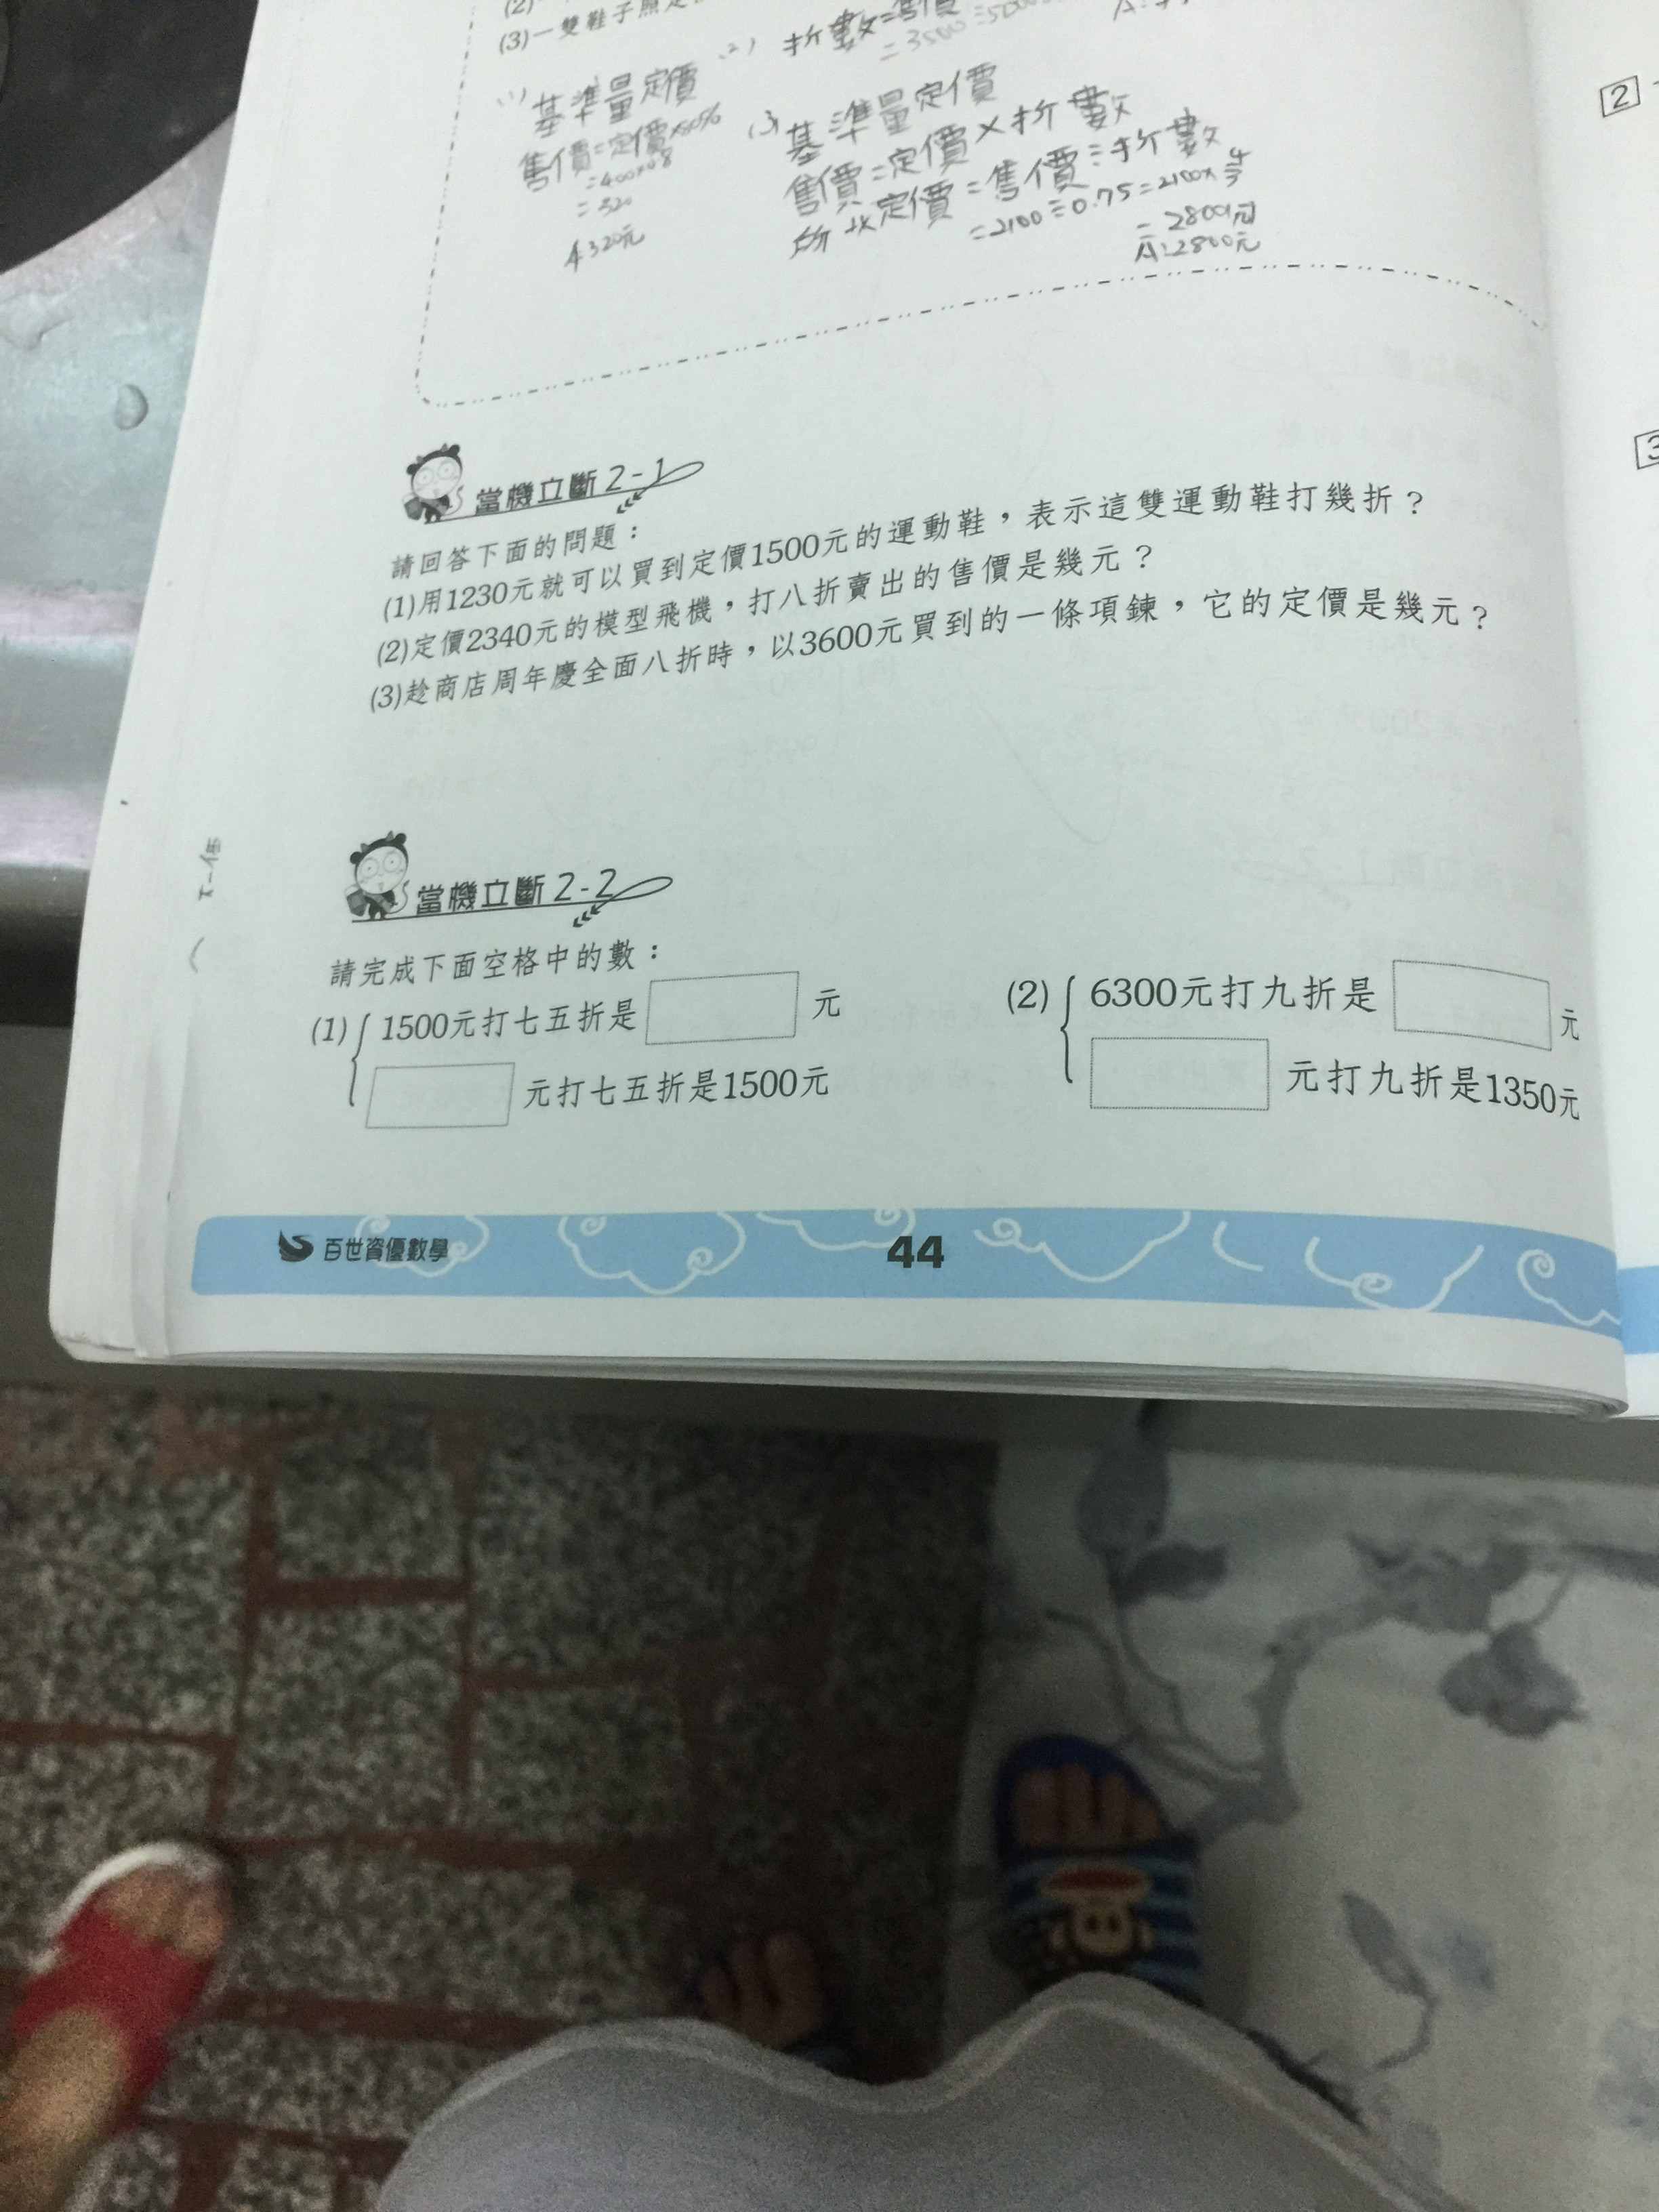 (2)
(3)一雙鞋子照定
(1)
基準量定價
售價=定價×80%
=400×0.8
=320
A:320元
(2) 折數=售價
=3500÷500
(3)
基準量定價
售價=定價×折數
所以定價=售價÷折數
=2100÷0.75=2100×
=2800元
A:2800元
當機立斷2-1
請回答下面的問題:
(1)用1230元就可以買到定價1500元的運動鞋,表示這雙運動鞋打幾折?
(2)定價2340元的模型飛機,打八折賣出的售價是幾元?
(3)趁商店周年慶全面八折時,以3600元買到的一條項鍊,它的定價是幾元?
當機立斷2-2
請完成下面空格中的數:
(1) 1500元打七五折是 元
元打七五折是1500元
(2) 6300元打九折是 元
元打九折是1350元
百世資優數學
44
2
3